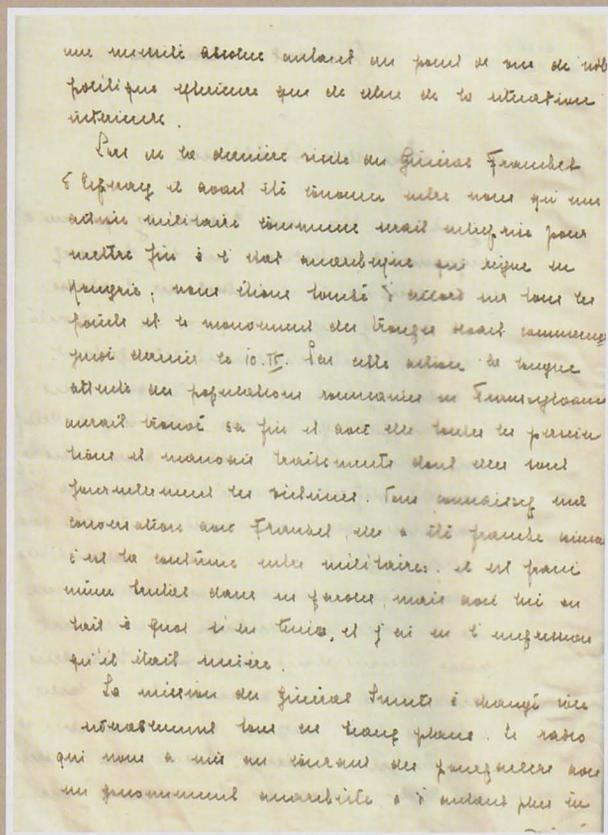 une necessité absolue autant au point de vue de not
politique exterieure que de celui de la situation
interieure.
Lors de la derniere visite du Général Franchet
d'Esperey il avait été convenu entre nous qu'une
action militaire commune serait entreprise pour
mettre fin à l'etat anarchique qui règne en
Hongrie; nous étions tombé d'accord sur tous les
points et le mouvement des troupes devait commenç
jeudi dernier le 10.IV. Par cette action la longue
attente des populations roumaines en Transylvanie
aurait trouvé sa fin et avec elle toutes les persecu
tions et mauvais traitements dont elles sont
journellement les victimes. Vous connaissez ma
conversation avec Franchet, elle a été franche comme
c'est la coutume entre militaires. il est franc
même brutal dans ses paroles, mais avec lui on
sait à quoi s'en tenir, et j'ai eu l'impression
qu'il était sincère.
La mission du Général Smuts à changé
tous ces beaux plans. Le radio
qui nous a mis au courant des pourparlers avec
un gouvernement anarchiste, a d'autant plus